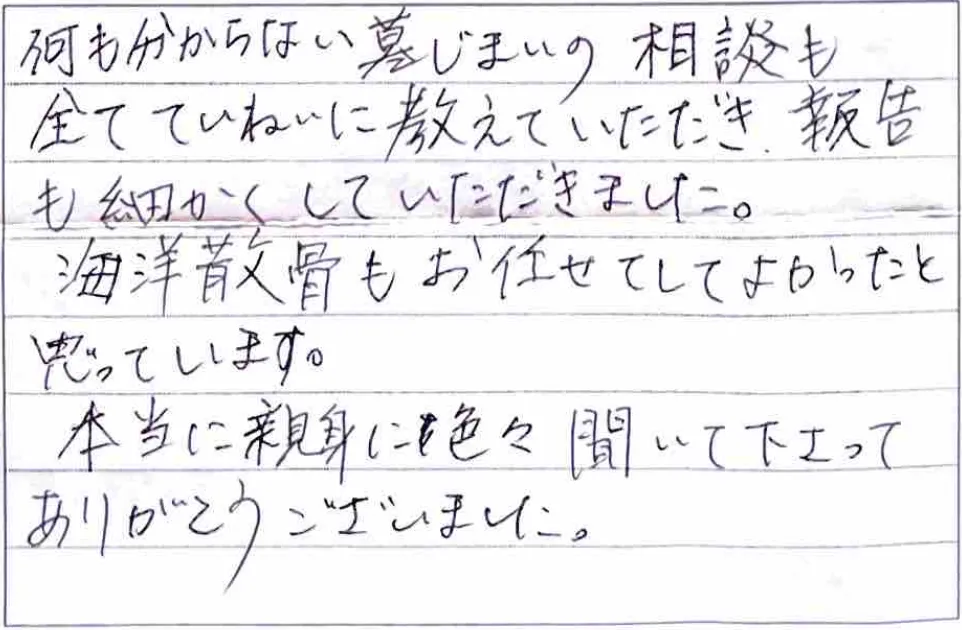 何も分からない墓じまいの相談も
全てていねいに教えていただき、報告
も細かくしていただきました。
海洋散骨もお任せてしてよかったと
思っています。
本当に親身に色々聞いて下さって
ありがとうございました。